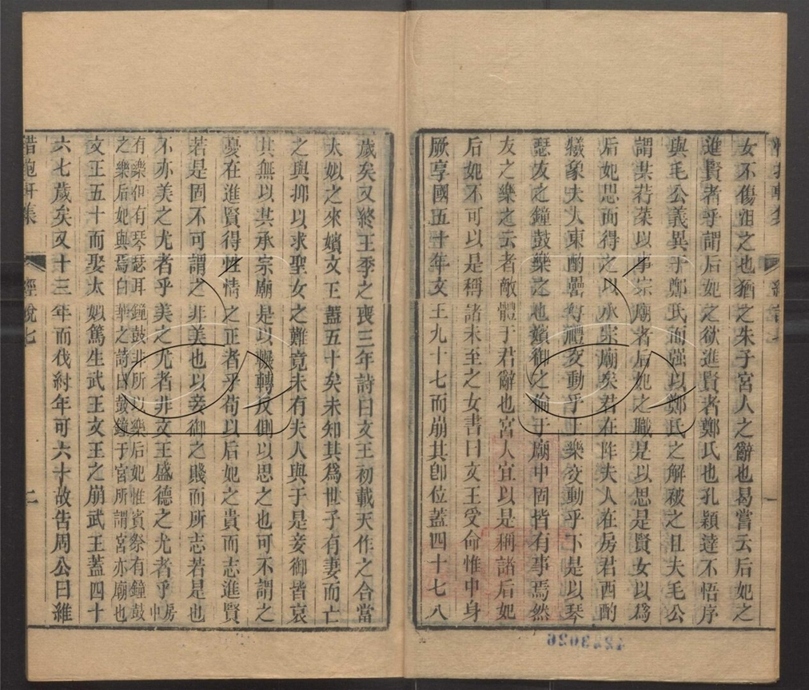 女不傷詛之也猶之朱子宮人之辭也曷嘗云后妃之
進賢者乎謂后妃之欲進賢者鄭氏也孔穎達不悟序
與毛公義異于鄭氏而强以鄭氏之解被之且夫毛公
謂共荇菜以事宗廟者后妃之職是以思是賢女以爲
后妃思而得之以承宗廟矣君在阼夫人在房君西酌
犧象夫人東酌罍尊禮交動乎上樂交動乎下是以琴
瑟友之鐘鼓樂之也嬪御之倫于廟中固皆有事焉然
友之樂之云者敵體于君辭也宮人宜以是稱諸后妃
后妃不可以是稱諸未至之女書曰文王受命惟中身
厥享國五十年文王九十七而崩其卽位蓋四十七八
歲矣又終王季之喪三年詩曰文王初載天作之合當
太姒之來嬪文王蓋五十矣未知其爲世子有妻而亡
之與抑以求聖女之難竟未有夫人與于是妾御皆哀
其無以其承宗廟是以輾轉反側以思之也可不謂之
憂在進賢得性情之正者乎苟以后妃之貴而志進賢
若是固不可謂之非美也以妾御之賤而所志若是也
不亦美之尤者乎美之尤者非文王盛德之尤者乎房中
有樂但有琴瑟耳鐘鼓非所以樂后妃惟賓祭有鐘鼓
之樂后妃與焉白華之詩曰鼓鐘于宮所謂宮亦廟也
文王五十而娶太姒篤生武王文王之崩武王蓋四十
六七歲矣又十三年而伐紂年可六十故告周公曰維
惜抱軒集
經說七
二